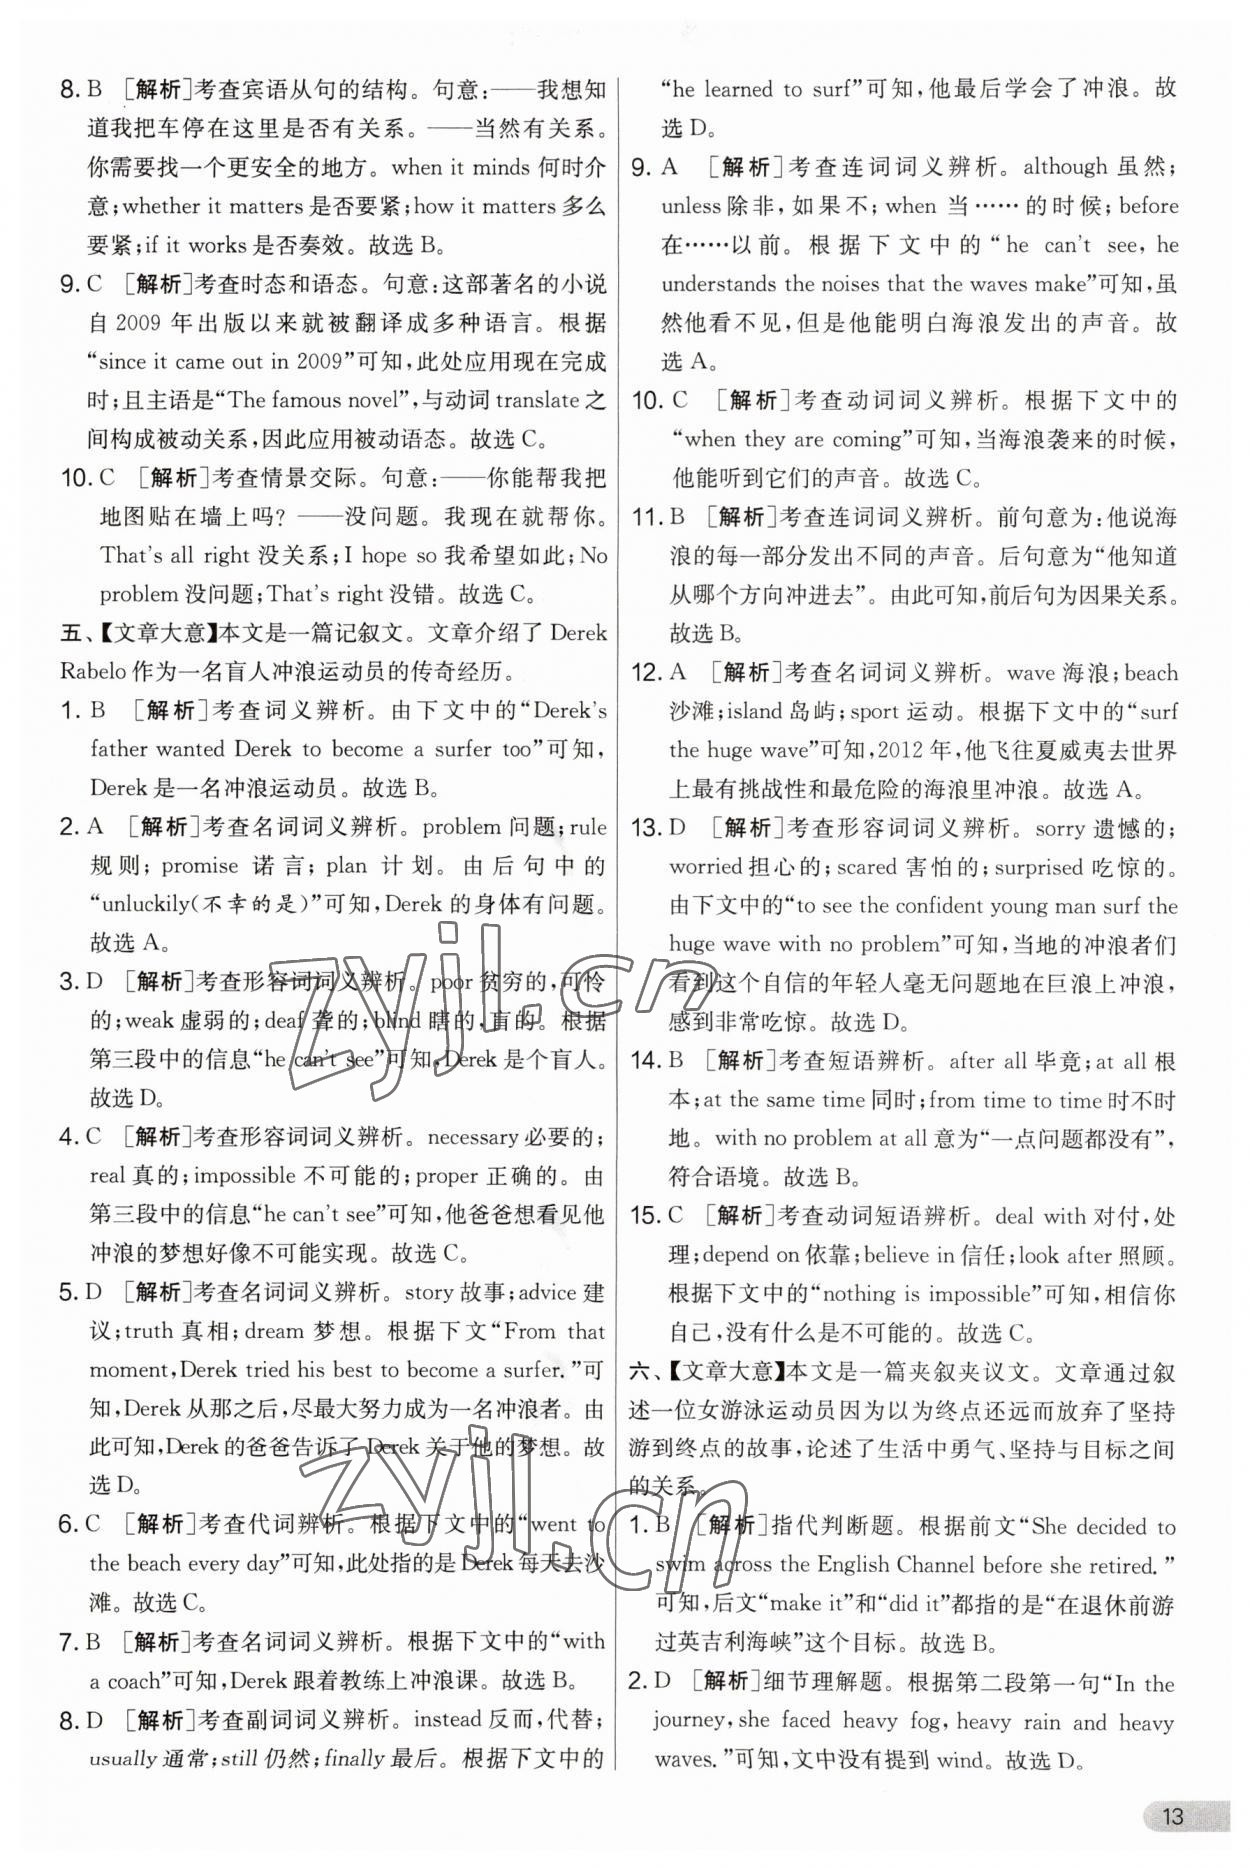 8. B　[解析]考查宾语从句的结构。句意:——我想知
道我把车停在这里是否有关系。——当然有关系。
你需要找一个更安全的地方。when it minds 何时介
意;whether it matters 是否要紧;how it matters 多么
要紧;if it works 是否奏效。故选 B。
9. C　[解析]考查时态和语态。句意:这部著名的小说
自 2009 年出版以来就被翻译成多种语言。根据
“since it came out in 2009”可知,此处应用现在完成
时;且主语是“The famous novel”,与动词 translate 之
间构成被动关系,因此应用被动语态。故选 C。
10. C　[解析]考查情景交际。句意:——你能帮我把
地图贴在墙上吗? ——没问题。我现在就帮你。
That's all right 没关系;I hope so 我希望如此;No
problem 没问题;That's right 没错。故选 C。
五、【文章大意】本文是一篇记叙文。文章介绍了 Derek
Rabelo 作为一名盲人冲浪运动员的传奇经历。
1. B　[解析]考查词义辨析。由下文中的“Derek's
father wanted Derek to become a surfer too”可知,
Derek 是一名冲浪运动员。故选 B。
2. A　[解析]考查名词词义辨析。problem 问题;rule
规则; promise 诺言; plan 计划。由后句中的
“unluckily(不幸的是)”可知,Derek 的身体有问题。
故选 A。
3. D　[解析]考查形容词词义辨析。poor 贫穷的,可怜
的;weak 虚弱的;deaf 聋的;blind 瞎的,盲的。根据
第三段中的信息“he can't see”可知,Derek 是个盲人。
故选 D。
4. C　[解析]考查形容词词义辨析。necessary 必要的;
real 真的;impossible 不可能的;proper 正确的。由
第三段中的信息“he can't see”可知,他爸爸想看见他
冲浪的梦想好像不可能实现。故选 C。
5. D　[解析]考查名词词义辨析。story 故事;advice 建
议;truth 真相;dream 梦想。根据下文“From that
moment,Derek tried his best to become a surfer.”可
知,Derek 从那之后,尽最大努力成为一名冲浪者。由
此可知,Derek 的爸爸告诉了 Derek 关于他的梦想。故
选 D。
6. C　[解析]考查代词辨析。根据下文中的“went to
the beach every day”可知,此处指的是 Derek 每天去沙
滩。故选 C。
7. B　[解析]考查名词词义辨析。根据下文中的“with
a coach”可知,Derek 跟着教练上冲浪课。故选 B。
8. D　[解析]考查副词词义辨析。instead 反而,代替;
usually 通常;still 仍然;finally 最后。根据下文中的
“he learned to surf”可知,他最后学会了冲浪。故
选 D。
9. A　[解析]考查连词词义辨析。although 虽然;
unless 除非,如果不;when 当……的时候;before
在……以前。根据下文中的“he can't see, he
understands the noises that the waves make”可知,虽
然他看不见,但是他能明白海浪发出的声音。故
选 A。
10. C　[解析]考查动词词义辨析。根据下文中的
“when they are coming”可知,当海浪袭来的时候,
他能听到它们的声音。故选 C。
11. B　[解析]考查连词词义辨析。前句意为:他说海
浪的每一部分发出不同的声音。后句意为“他知道
从哪个方向冲进去”。由此可知,前后句为因果关系。
故选 B。
12. A　[解析]考查名词词义辨析。wave 海浪;beach
沙滩;island 岛屿;sport 运动。根据下文中的“surf
the huge wave”可知,2012 年,他飞往夏威夷去世界
上最有挑战性和最危险的海浪里冲浪。故选 A。
13. D　[解析]考查形容词词义辨析。sorry 遗憾的;
worried 担心的;scared 害怕的;surprised 吃惊的。
由下文中的“to see the confident young man surf the
huge wave with no problem”可知,当地的冲浪者们
看到这个自信的年轻人毫无问题地在巨浪上冲浪,
感到非常吃惊。故选 D。
14. B　[解析]考查短语辨析。after all 毕竟;at all 根
本;at the same time 同时;from time to time 时不时
地。with no problem at all 意为“一点问题都没有”,
符合语境。故选 B。
15. C　[解析]考查动词短语辨析。deal with 对付,处
理;depend on 依靠;believe in 信任;look after 照顾。
根据下文中的“nothing is impossible”可知,相信你
自己,没有什么是不可能的。故选 C。
六、【文章大意】本文是一篇夹叙夹议文。文章通过叙
述一位女游泳运动员因为以为终点还远而放弃了坚持
游到终点的故事,论述了生活中勇气、坚持与目标之间
的关系。
1. B　[解析]指代判断题。根据前文“She decided to
swim across the English Channel before she retired. ”
可知,后文“make it”和“did it”都指的是“在退休前游
过英吉利海峡”这个目标。故选 B。
2. D　[解析]细节理解题。根据第二段第一句“In the
journey, she faced heavy fog, heavy rain and heavy
waves. ”可知,文中没有提到 wind。故选 D。
13
zyjl.cn
zyjl.cn